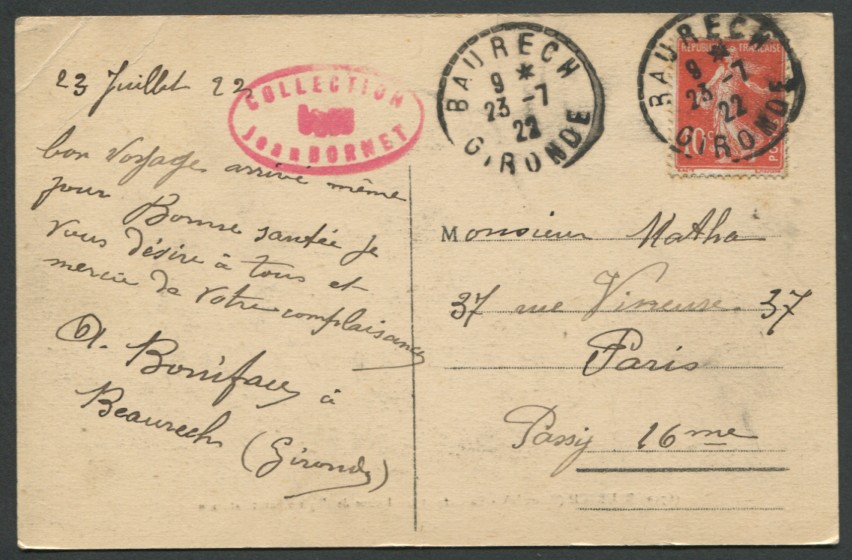 23 Juillet 22
COLLECTION
Jean BORNET
bon voyage arrivé même
jour Bonne santée je
vous désire à tous et
mercie de votre complaisance
A. Boniface à
Beaurech
(Gironde)
BAURECH
9 *
23 -7
22
GIRONDE
BAURECH
9 *
23 -7
22
GIRONDE
REPUBLIQUE FRANÇAISE
10c
POSTES
Monsieur Matha
37 rue Vineuse 37
Paris
Passy 16me